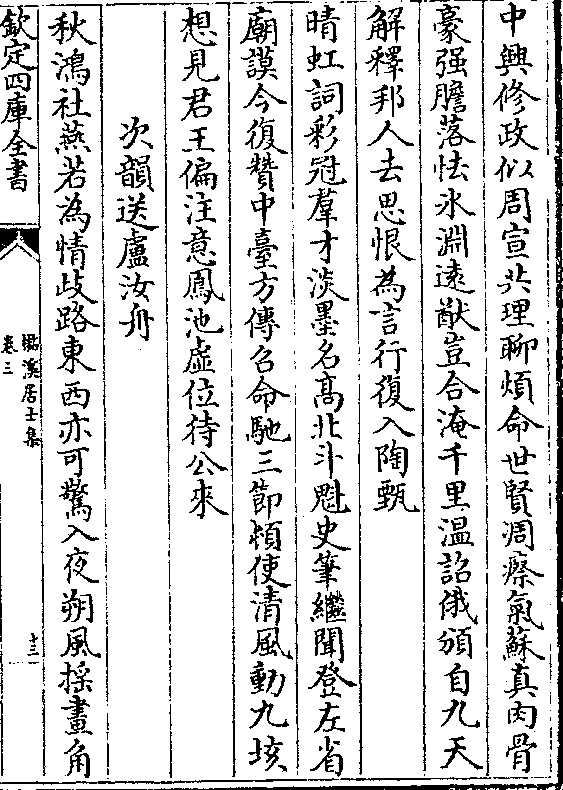 中興修政似周宣共理聊煩命世賢凋瘵氣蘇真肉骨
豪强膽落怯氷淵逺猷豈合淹千里温詔俄頒自九天
解釋邦人去思恨為言行復入陶甄
晴虹詞彩冠羣才淡墨名髙北斗魁史筆繼聞登左省
廟謨今復贊中臺方傳召命馳三節頓使清風動九垓
想見君王偏注意鳳池虚位待公來
次韻送盧汝舟
秋鴻社燕若為情歧路東西亦可驚入夜朔風摇畫角
欽定四庫全書
溪居士集
卷三
十三